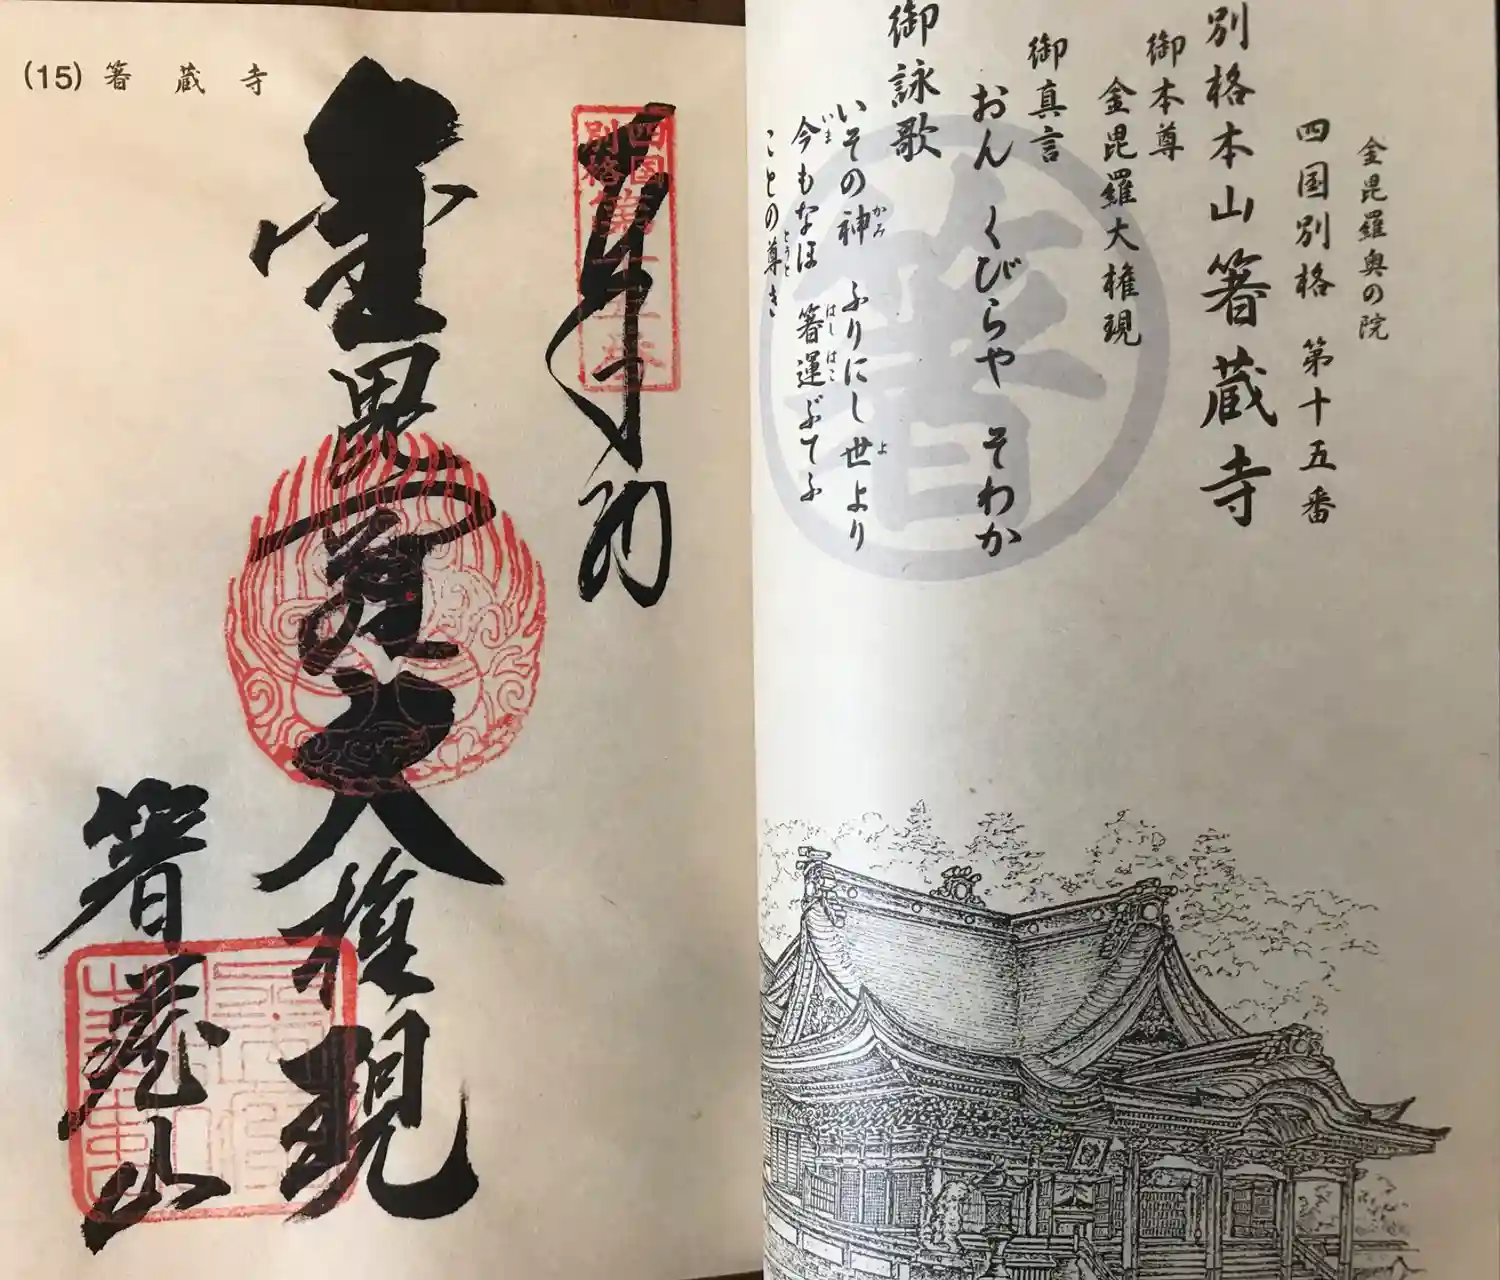 金毘羅奥の院
四国別格 第十五番
別格本山 箸蔵寺
御本尊
金毘羅大権現
御真言
おん くびらや そわか
御詠歌
いその神 ふりにし世より
かみ よ
今もなほ 箸運ぶてふ
いま はし はこ
ことの尊き
とうと
箸
(15) 箸蔵寺
四国
別格第十五番
奉拝
金毘羅大権現
箸蔵山